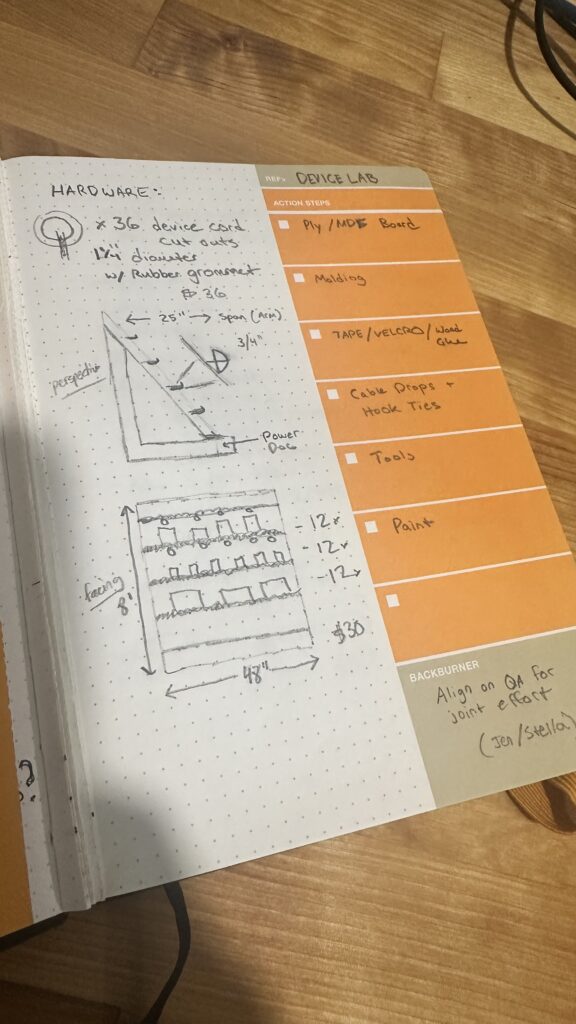 HARDWARE:
x 36 device cord
cut outs
1 1/4" diameter
w/ Rubber grommet
$36
← 25" → span (Arm)
3/4"
perspective
Power
- 12
- 12
- 12
facing
8'
$30
48"
REF> DEVICE LAB
ACTION STEPS
Ply / MDF Board
Molding
TAPE / VELCRO / Wood
Glue
Cable Drops +
Hook Ties
Tools
Paint
BACKBURNER
Align on QA for
joint effort
(Jen/Stella)
?